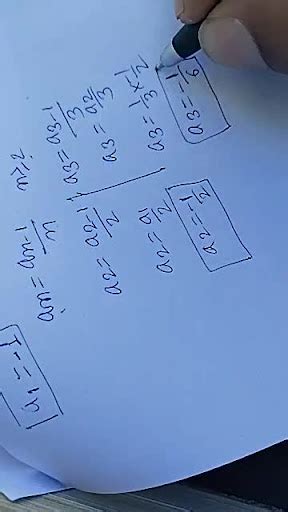 a1 = -1
an = an-1/n n≥2
a2 = a2-1/2
a2 = a1/2
a2 = -1/2
a3 = a3-1/3
a3 = a2/3
a3 = 1/3 × -1/2
a3 = -1/6